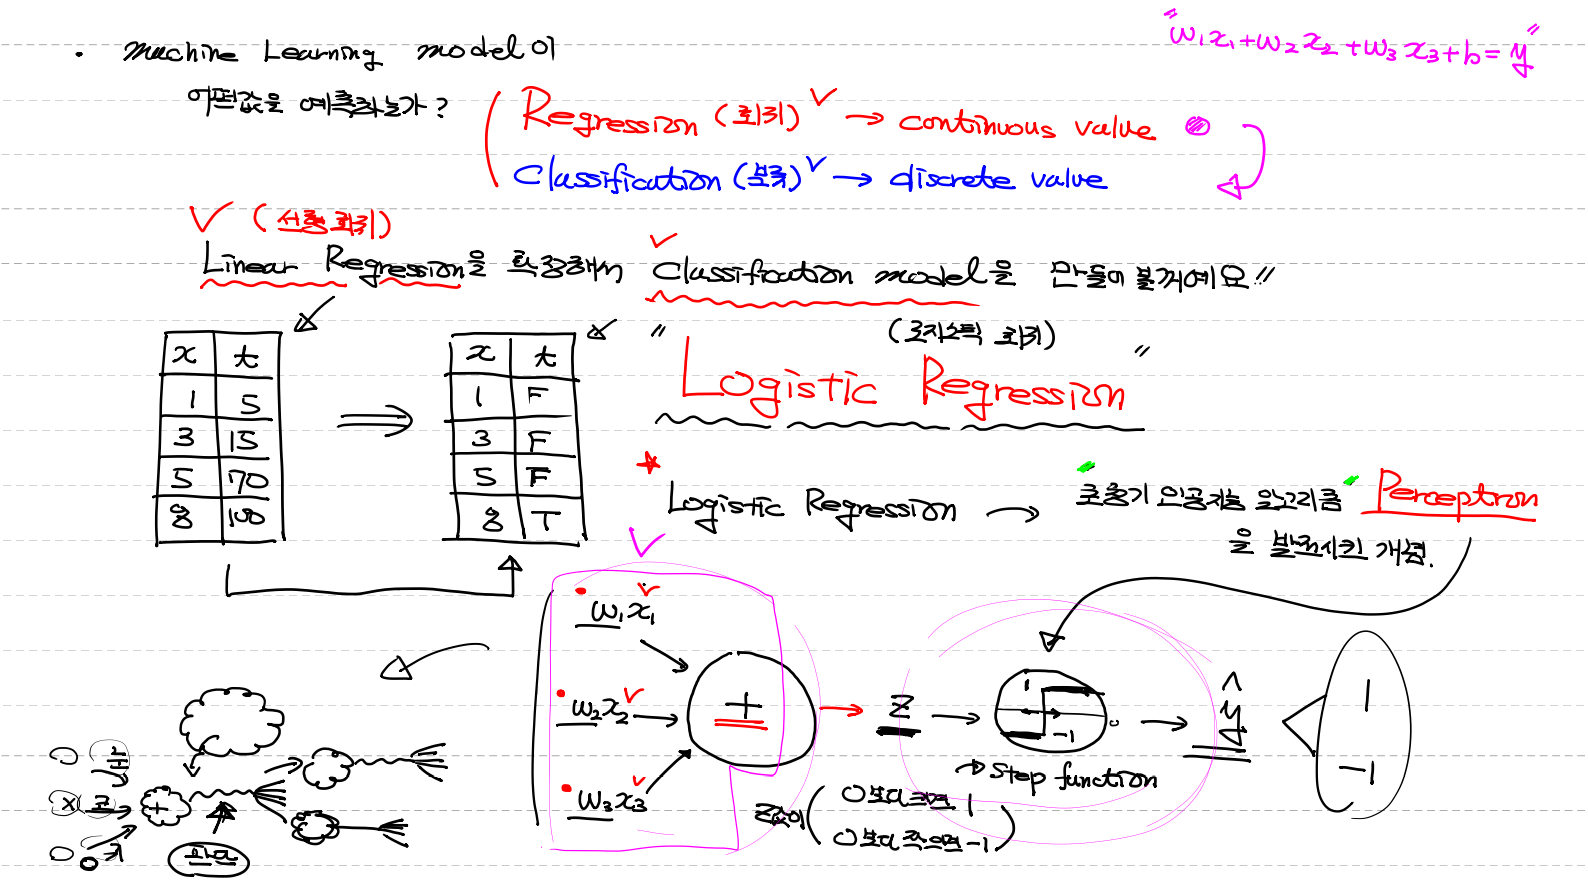 "w₁x₁+w₂x₂+w₃x₃+b=y"
· Machine Learning model이
어떤값을 예측하는가?
Regression (회귀) → continuous value
Classification (분류) → discrete value
(선형회귀)
Linear Regression을 확장해서 Classification model을 만들어 볼꺼예요"
(로지스틱 회귀)
" Logistic Regression "
x t
1 5
3 15
5 70
8 100
⇒
x t
1 F
3 F
5 F
8 T
★ Logistic Regression → 초창기 인공지능 알고리즘 Perceptron
을 발전시킨 개념.
w₁x₁
w₂x₂ → + → z → 1 -1 → ŷ < 1 -1
w₃x₃
→ step function
z값이 ( 0보다 크면 1
0보다 작으면 -1 )
○ 눈
× 코 +
○ 귀